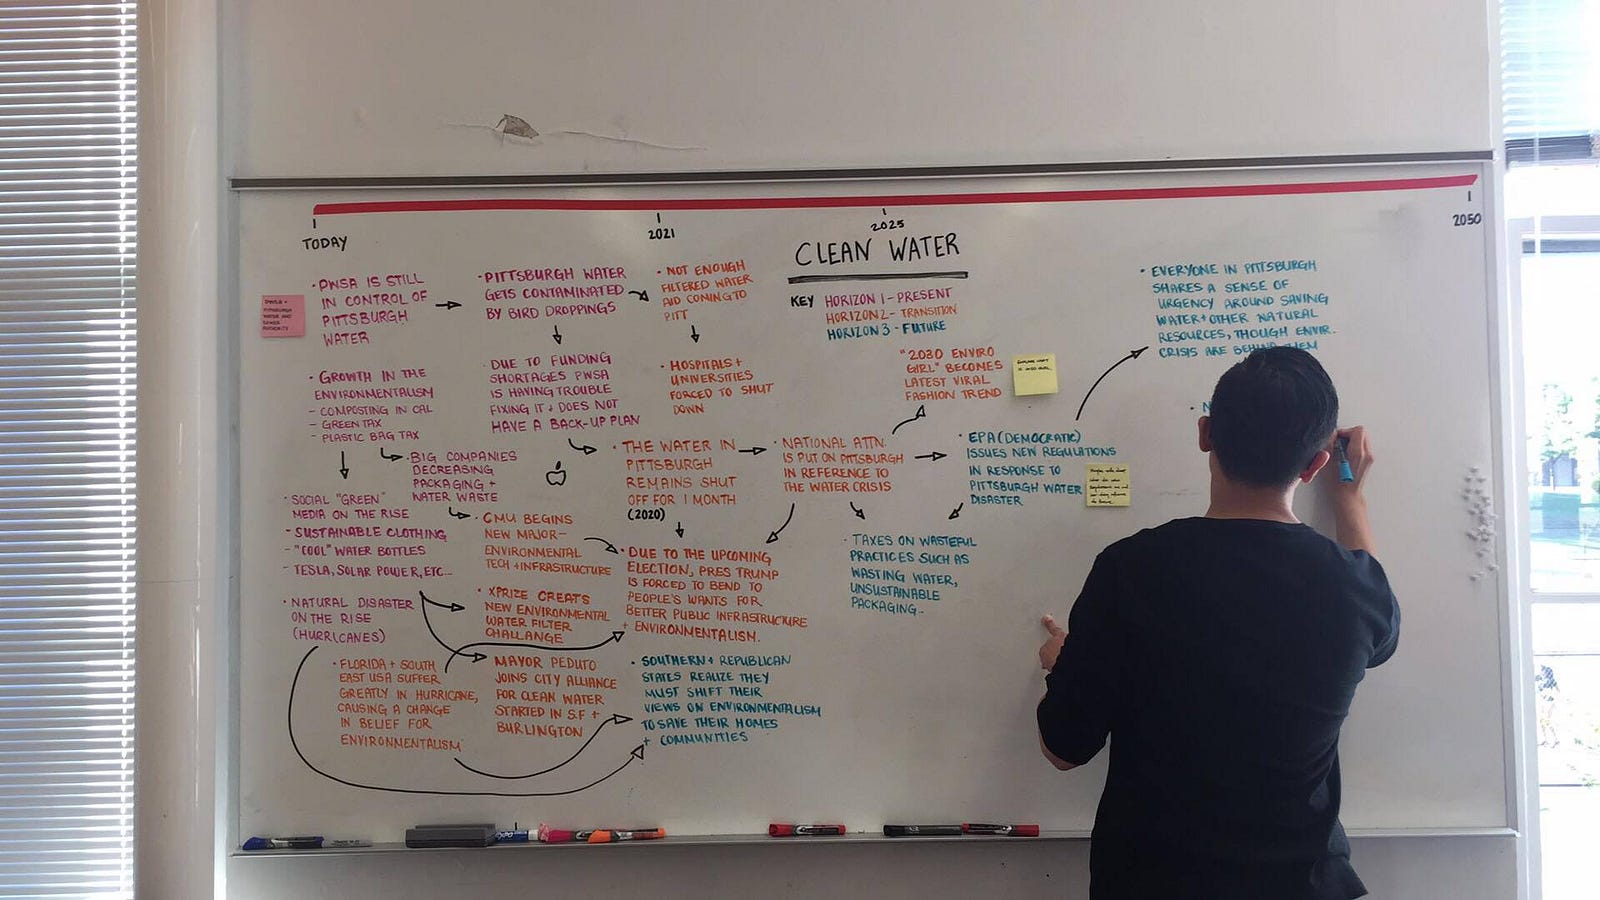 TODAY
2021
2025
2050
CLEAN WATER
KEY HORIZON 1 - PRESENT
HORIZON 2 - TRANSITION
HORIZON 3 - FUTURE
PWSA =
PITTSBURGH
WATER AND
SEWER
AUTHORITY
• PWSA IS STILL
IN CONTROL OF
PITTSBURGH
WATER
• GROWTH IN THE
ENVIRONMENTALISM
- COMPOSTING IN CAL
- GREEN TAX
- PLASTIC BAG TAX
• BIG COMPANIES
DECREASING
PACKAGING +
WATER WASTE
• SOCIAL "GREEN"
MEDIA ON THE RISE
- SUSTAINABLE CLOTHING
- "COOL" WATER BOTTLES
- TESLA, SOLAR POWER, ETC...
• NATURAL DISASTER
ON THE RISE
(HURRICANES)
• FLORIDA + SOUTH
EAST USA SUFFER
GREATLY IN HURRICANE,
CAUSING A CHANGE
IN BELIEF FOR
ENVIRONMENTALISM
• PITTSBURGH WATER
GETS CONTAMINATED
BY BIRD DROPPINGS
• DUE TO FUNDING
SHORTAGES PWSA
IS HAVING TROUBLE
FIXING IT + DOES NOT
HAVE A BACK-UP PLAN
• CMU BEGINS
NEW MAJOR -
ENVIRONMENTAL
TECH + INFRASTRUCTURE
• XPRIZE CREATS
NEW ENVIRONMENTAL
WATER FILTER
CHALLANGE
• MAYOR PEDUTO
JOINS CITY ALLIANCE
FOR CLEAN WATER
STARTED IN S.F +
BURLINGTON
• NOT ENOUGH
FILTERED WATER
AID COMING TO
PITT
• HOSPITALS +
UNIVERSITIES
FORCED TO SHUT
DOWN
• THE WATER IN
PITTSBURGH
REMAINS SHUT
OFF FOR 1 MONTH
(2020)
• DUE TO THE UPCOMING
ELECTION, PRES TRUMP
IS FORCED TO BEND TO
PEOPLE'S WANTS FOR
BETTER PUBLIC INFRASTRUCTURE
+ ENVIRONMENTALISM.
• SOUTHERN + REPUBLICAN
STATES REALIZE THEY
MUST SHIFT THEIR
VIEWS ON ENVIRONMENTALISM
TO SAVE THEIR HOMES
+ COMMUNITIES
• NATIONAL ATTN.
IS PUT ON PITTSBURGH
IN REFERENCE TO
THE WATER CRISIS
"2030 ENVIRO
GIRL" BECOMES
LATEST VIRAL
FASHION TREND
• TAXES ON WASTEFUL
PRACTICES SUCH AS
WASTING WATER,
UNSUSTAINABLE
PACKAGING..
• EPA (DEMOCRATIC)
ISSUES NEW REGULATIONS
IN RESPONSE TO
PITTSBURGH WATER
DISASTER
• EVERYONE IN PITTSBURGH
SHARES A SENSE OF
URGENCY AROUND SAVING
WATER + OTHER NATURAL
RESOURCES, THOUGH ENVIR.
CRISIS ARE BEHIND THEM
EXPO